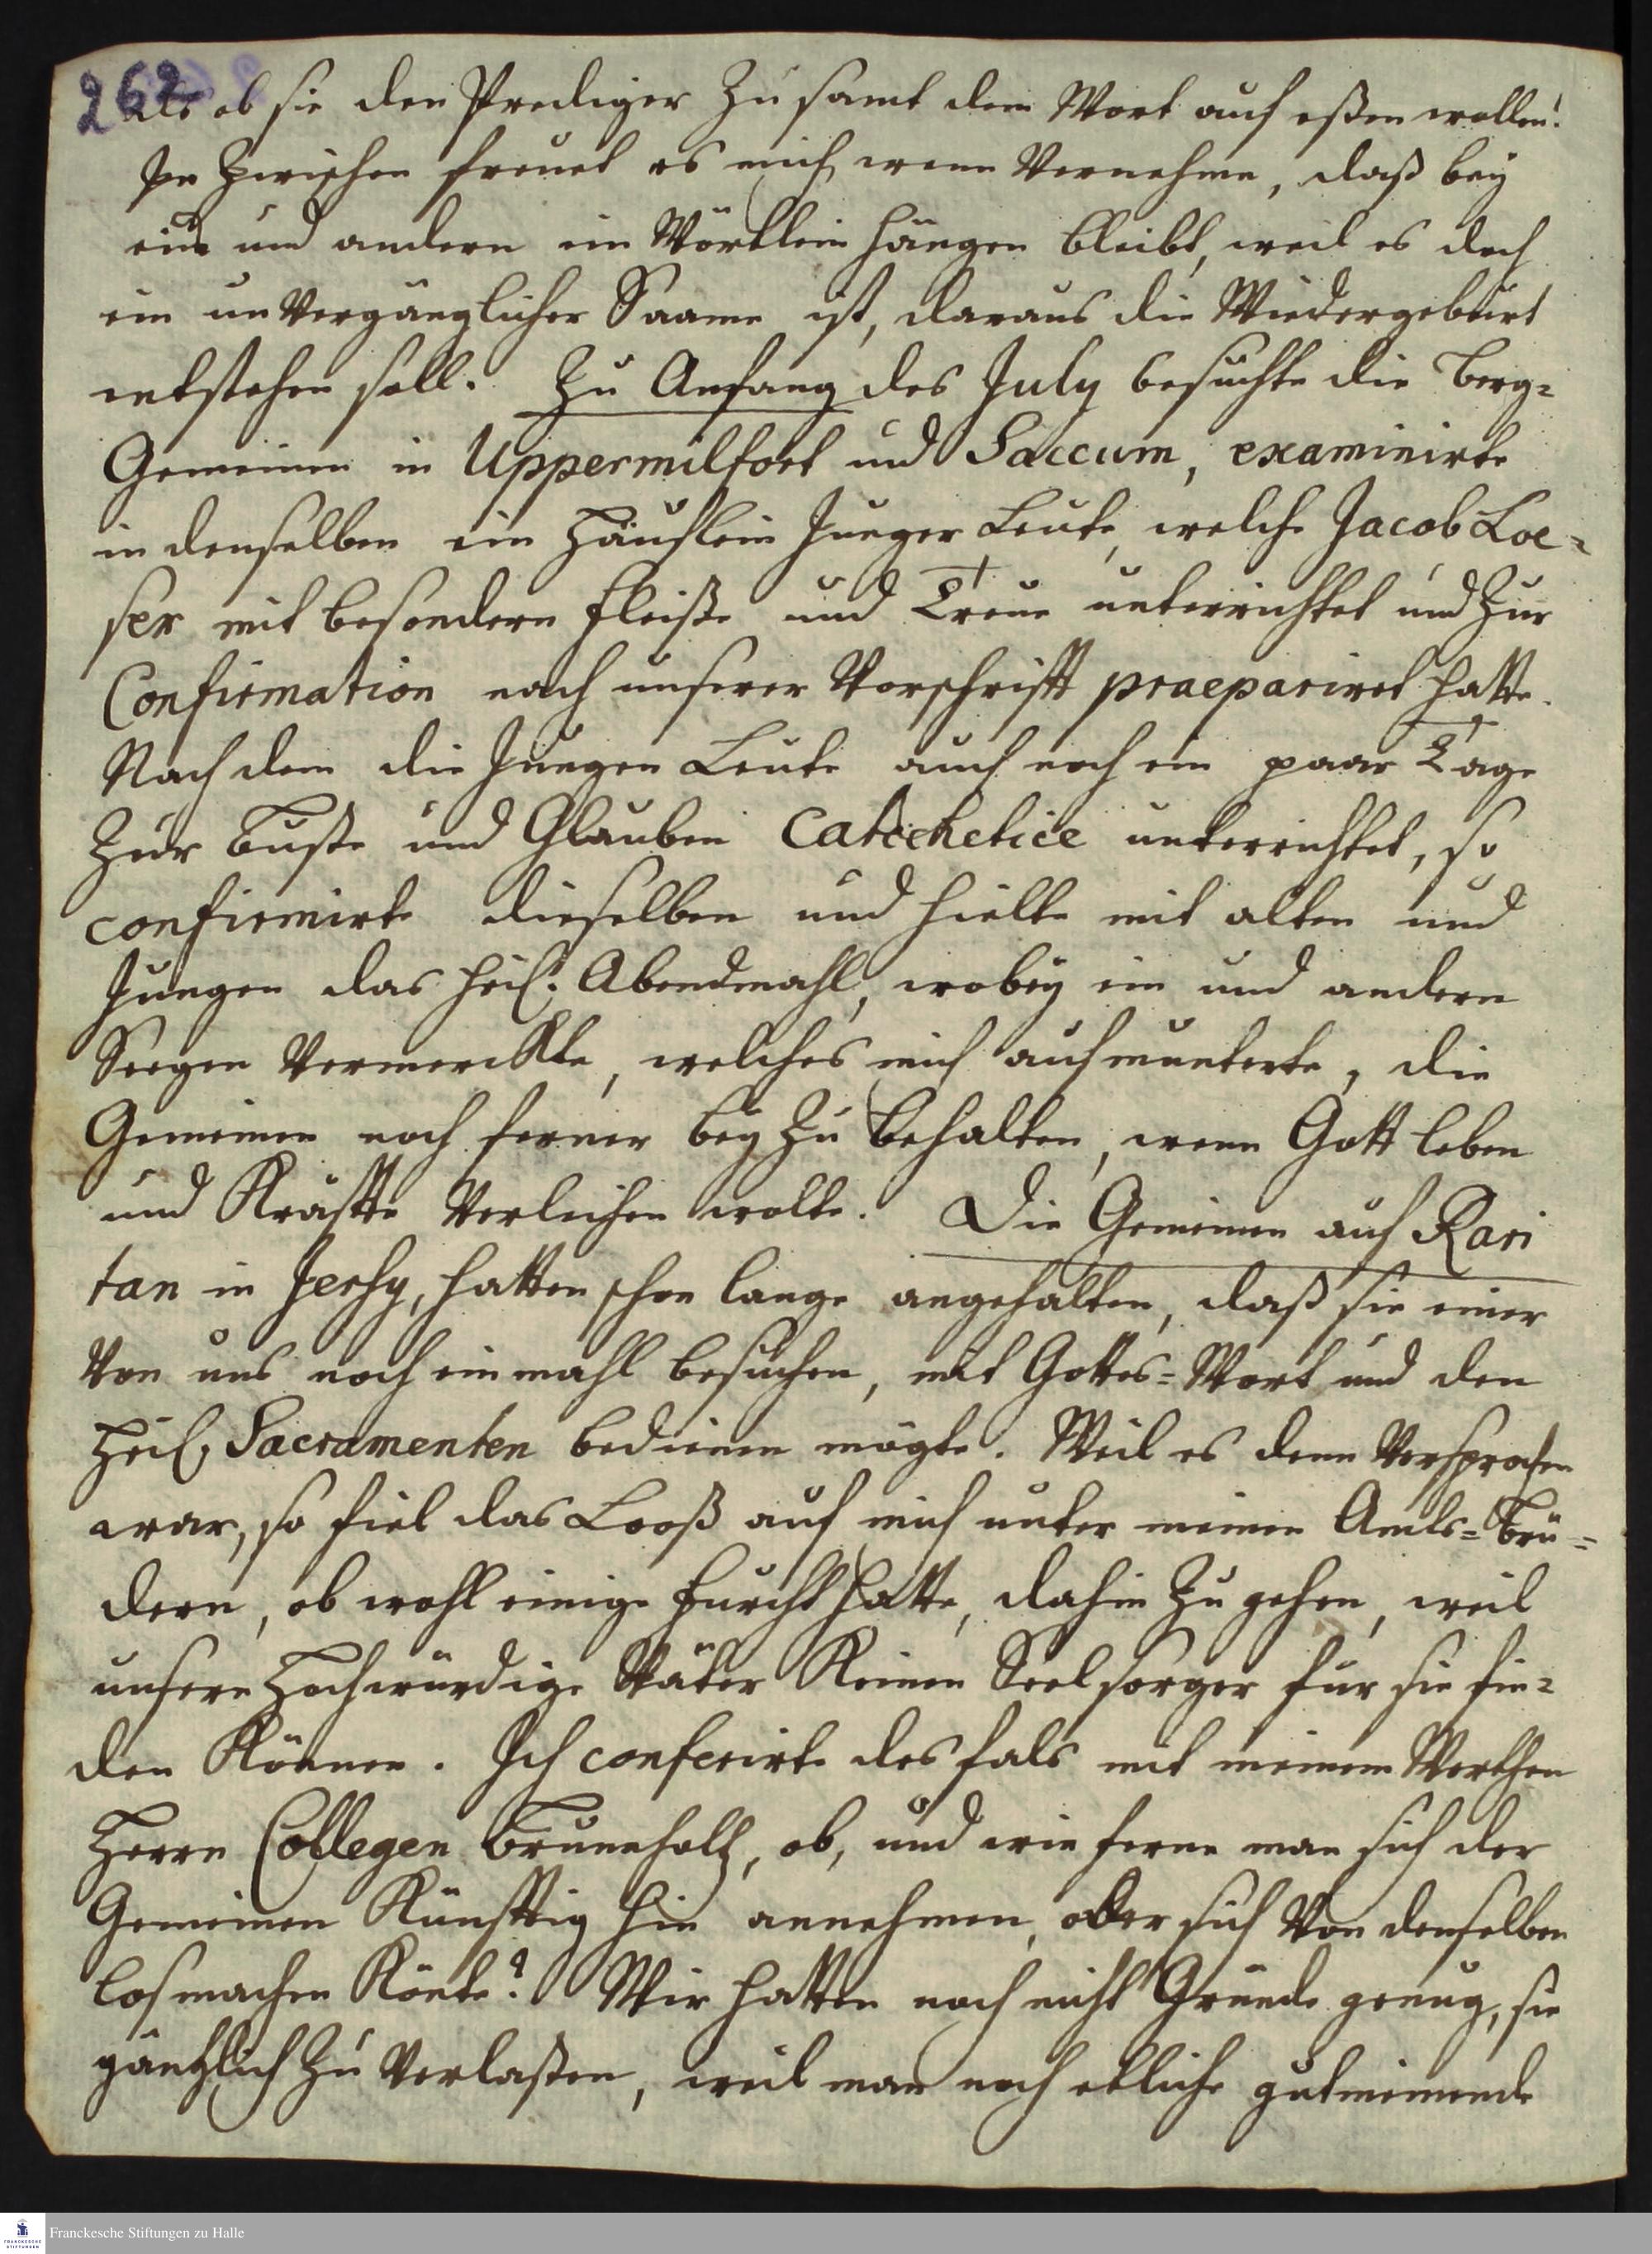 262
als ob sie den Prediger zu samt dem Wort auf eßen wollen!
In zwischen freuet es mich, wenn Vernehme, daß bey
ein und andern ein Wörtlein hängen bleibt, weil es doch
ein unVergänglicher Saame ist, daraus die Wiedergeburt
entstehen soll. Zu Anfang des July besuchte die Berg-
Gemeinen in Uppermilfort und Saccum, examinirte
in denselben ein Häuflein Junger Leute, welche Jacob Loe-
ser mit besondern Fleiße und Treue unterrichtet und zur
Confirmation nach unserer Vorschrifft praepariret hatte.
Nach dem die Jungen Leute auch noch ein paar Tage
zur Buße und Glauben Catechetice unterrichtet, so
confirmirte dieselben und hielte mit alten und
Jungen das heil. Abendmahl, wobey ein und andern
Seegen Vermerckte, welches mich aufmunterte, die
Gemeinen noch ferner bey zu behalten, wenn Gott leben
und Kräffte Verleihen wolte. Die Gemeinen auf Rari
tan in Jersy, hatten schon lange angehalten, daß sie einer
Von uns noch einmahl besuchen, mit Gottes-Wort und den
Heil. Sacramenten bedienen mögte. Weil es denn Versprochen
war, so fiel das Looß auf mich unter meinen Amts-Brü-
dern, ob wohl einige Furcht hatte, dahin zu gehen, weil
unsere Hochwürdige Väter Keinen Seelsorger für sie fin-
den Können. Ich conferirte des fals mit meinem Werthen
Herrn Collegen Brunnholtz, ob, und wie ferne man sich der
Gemeinen Künfftig hin annehmen, oder sich Von denselben
losmachen Könte? Wir hatten noch nicht Gründe genug, sie
gäntzlich zu Verlaßen, weil man noch etliche gutmeinende
Franckesche Stiftungen zu Halle